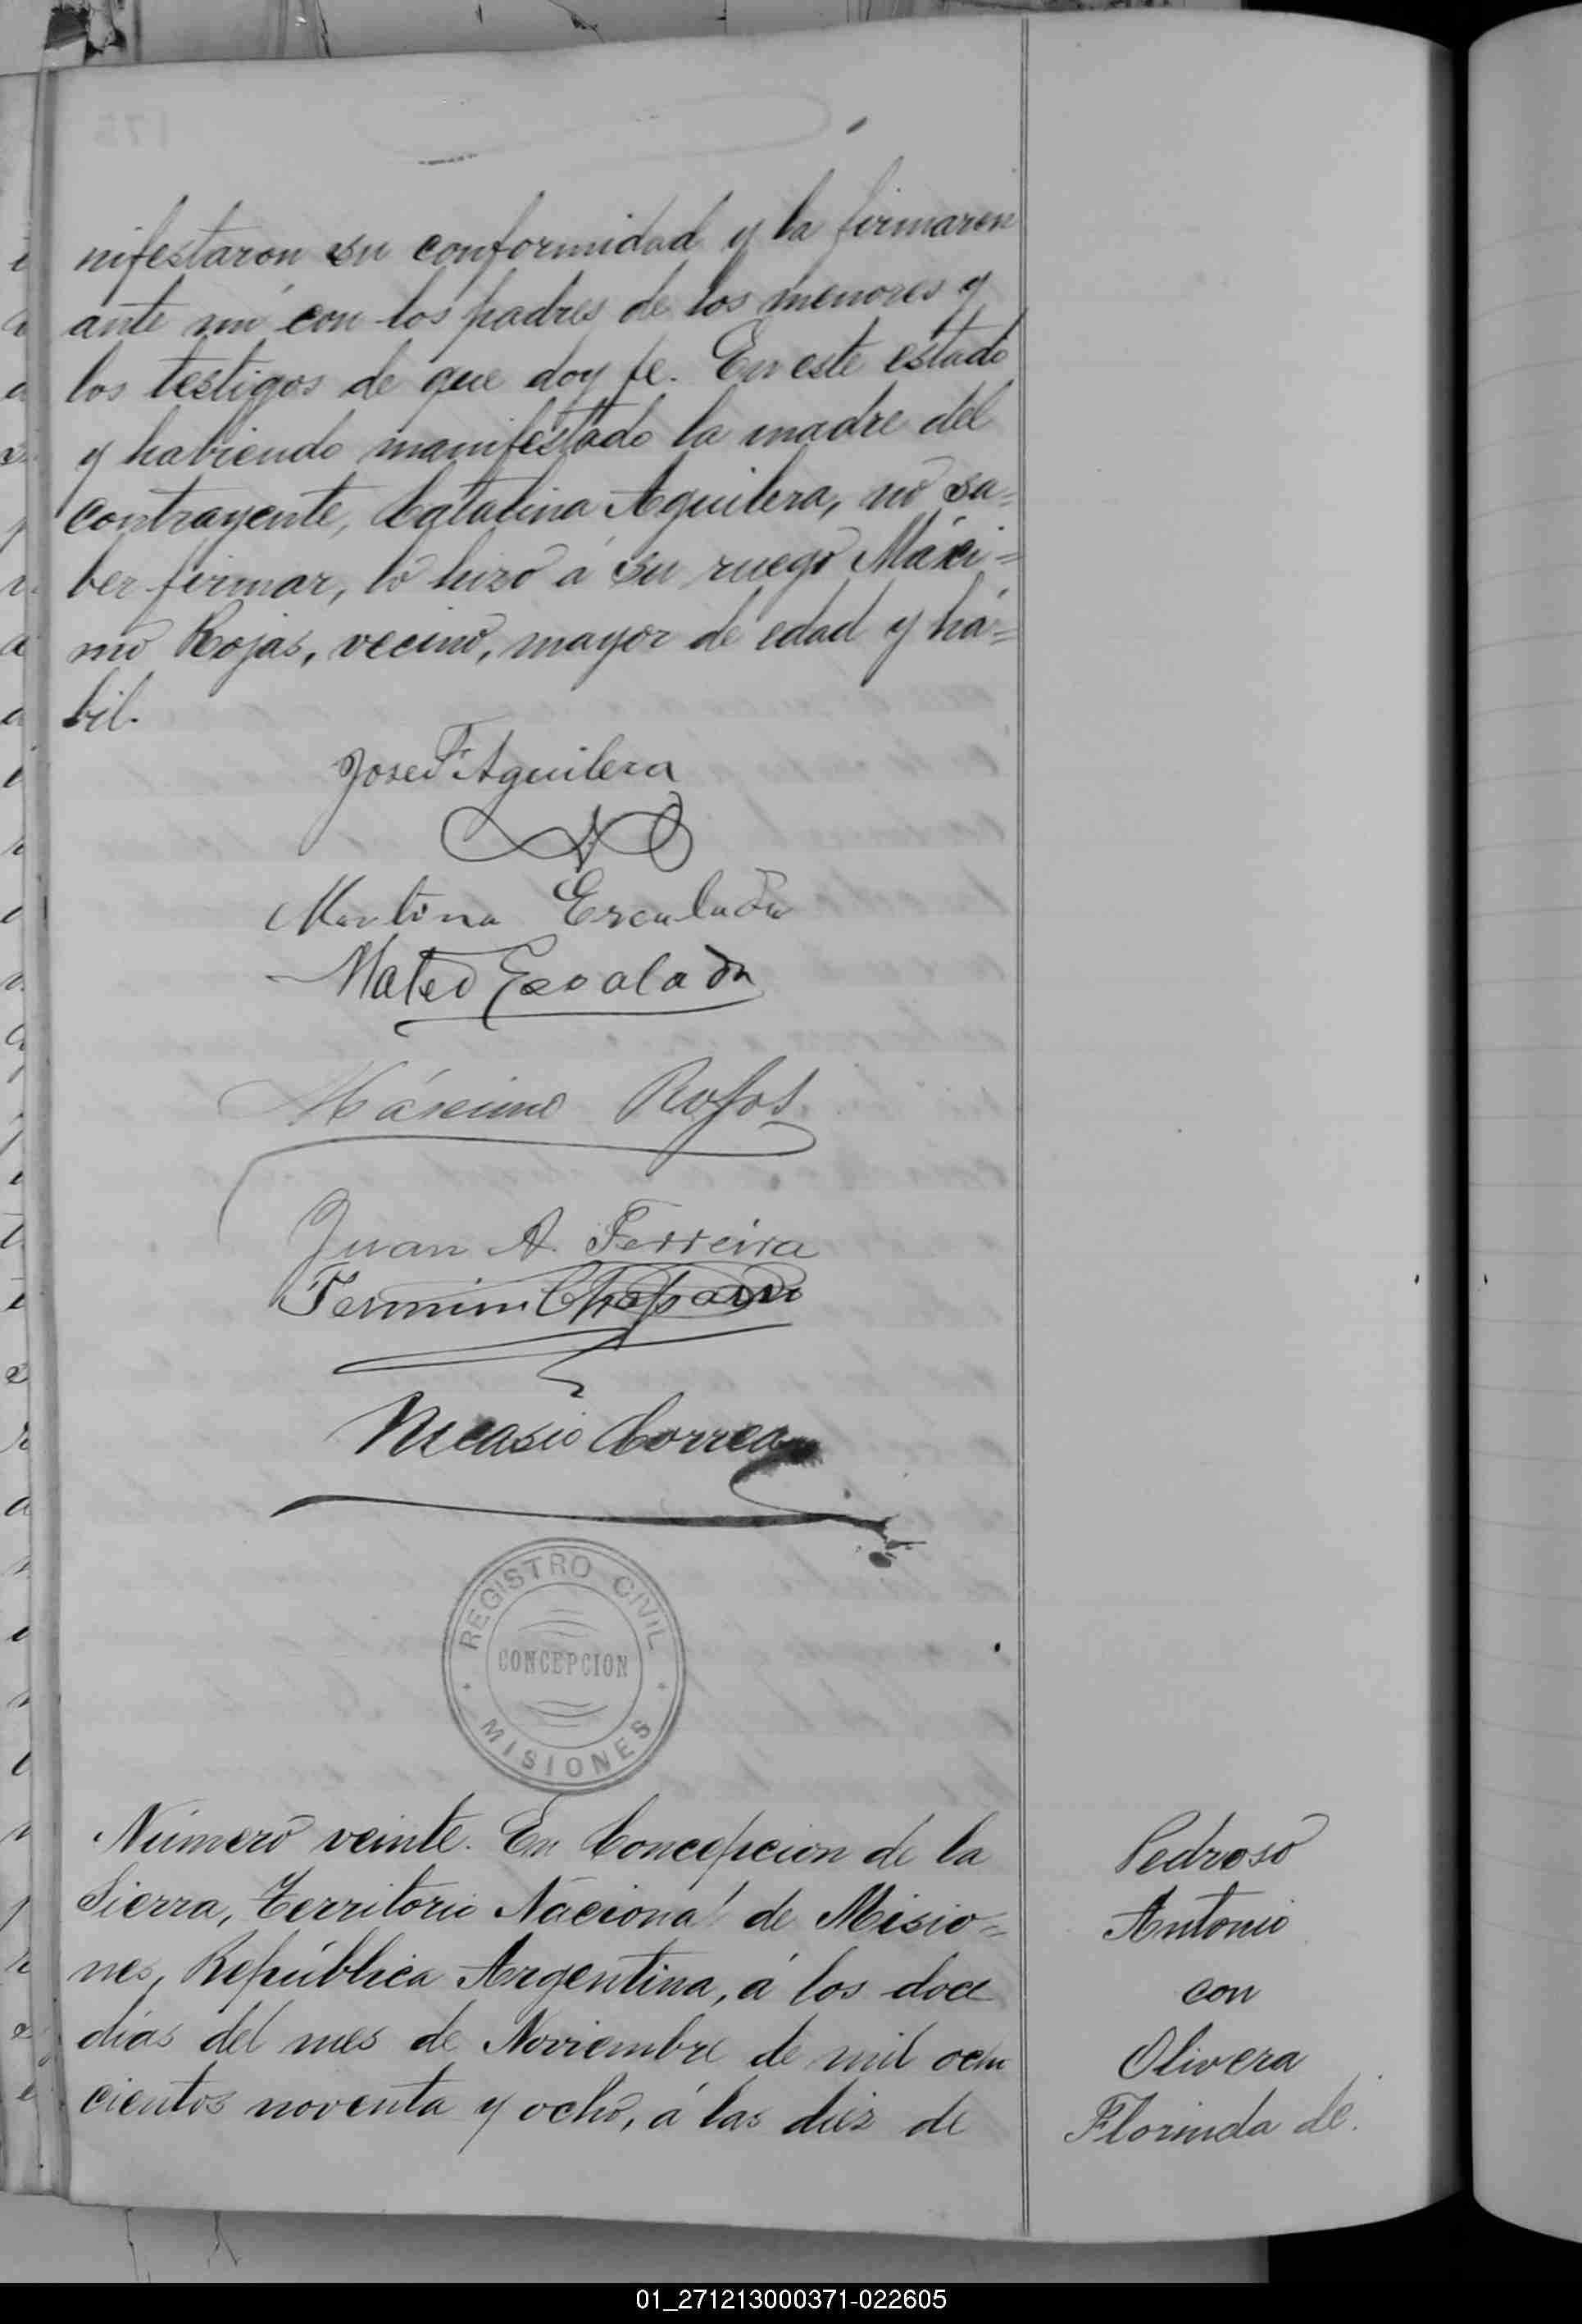 nifestaron su conformidad y la firmaron
ante mi con los padres de los menores y
los testigos de que doy fe. En este estado
y habiendo manifestado la madre del
contrayente, Catalina Aguilera, no sa=
ber firmar, lo hizo á su ruego Máxi=
mo Rojas, vecino, mayor de edad y há=
bil.
José F. Aguilera
Martina Escalada
Mateo Escalada
Máximo Rojas
Juan A. Ferreira
Fermin Chaparro
Nicasio Correa
REGISTRO CIVIL
CONCEPCION
MISIONES
Número veinte. En Concepcion de la
Sierra, Territorio Nacional de Misio=
nes, República Argentina, á los doce
dias del mes de Noviembre de mil ocho
cientos noventa y ocho, á las diez de
Pedroso
Antonio
con
Olivera
Florinda de.
01_271213000371-022605